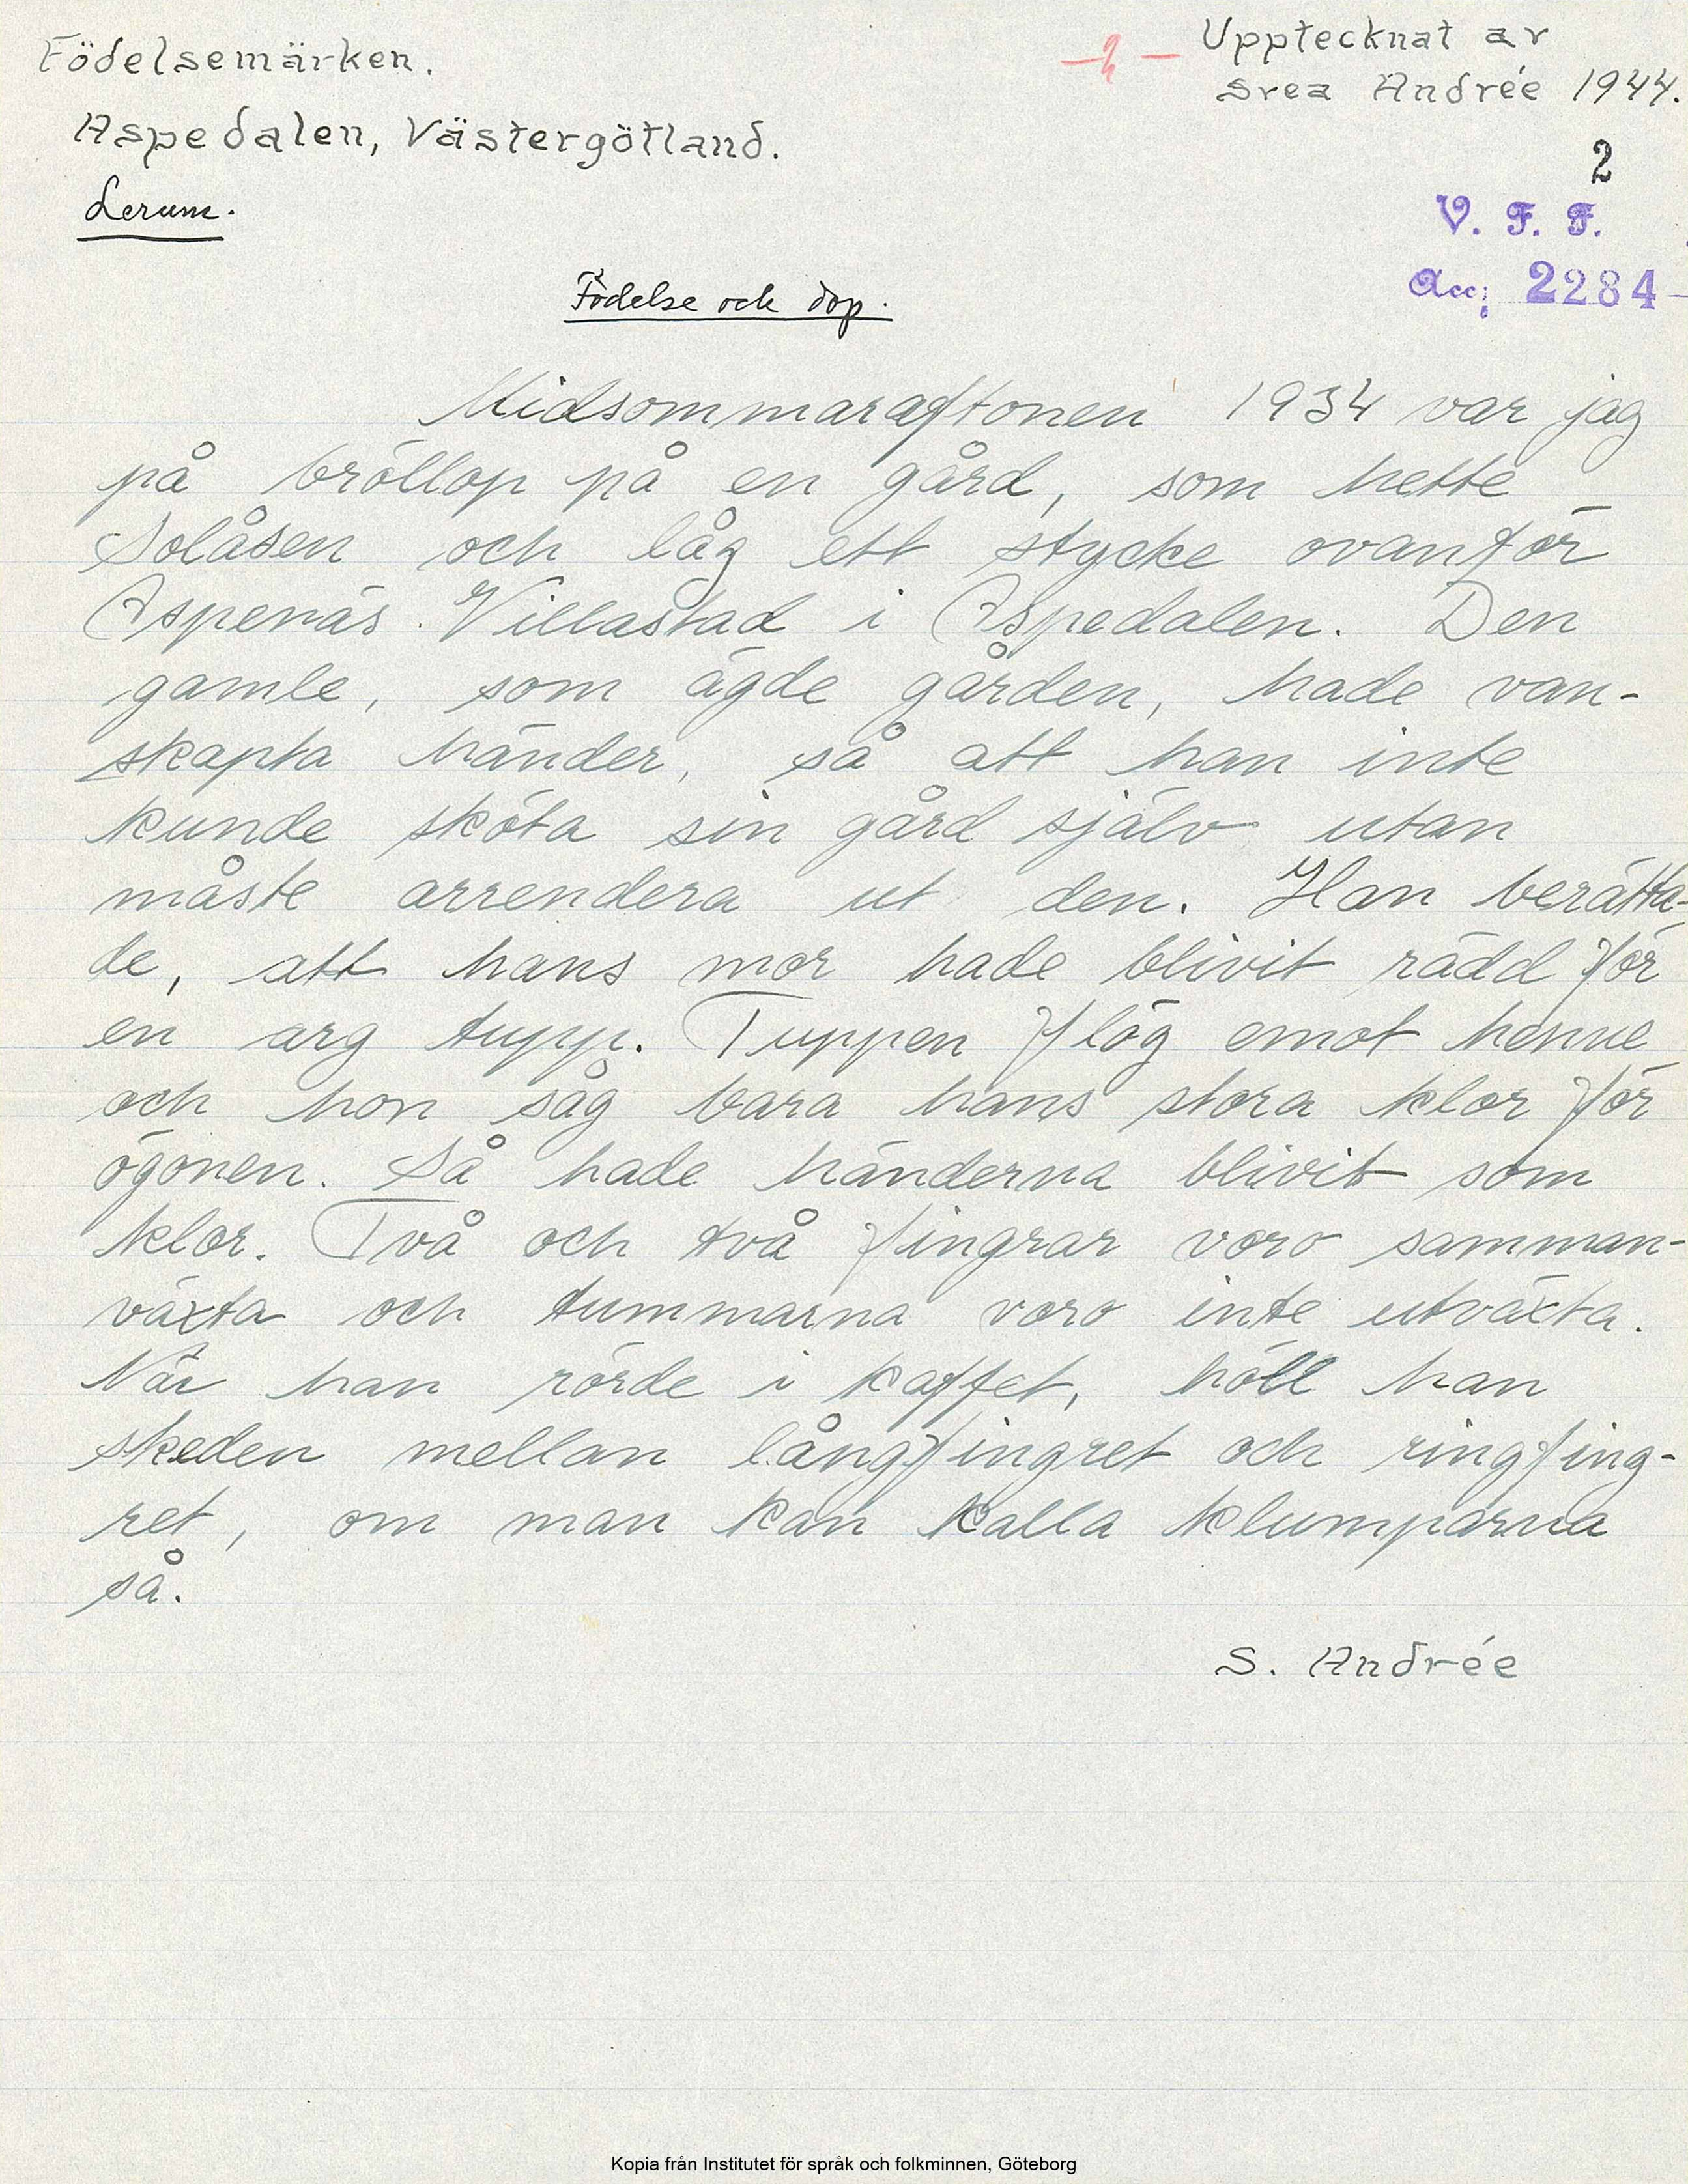 Födelsemärken.
Aspedalen, Västergötland.
Lerum.
Upptecknat av
Svea Andrée 1944.
2
V. F. F.
Acc; 2284
Födelse och dop.
Midsommaraftonen 1934 var jag
på bröllop på en gård, som hette
Solåsen och låg ett stycke ovanför
Aspenäs Villastad i Aspedalen. Den
gamle, som ägde gården, hade van-
skapta händer, så att han inte
kunde sköta sin gård själv utan
måste arrendera ut den. Han berätta-
de, att hans mor hade blivit rädd för
en arg tupp. Tuppen flög emot henne
och hon såg bara hans stora klor för
ögonen. Så hade händerna blivit som
klor. Två och två fingrar voro samman-
växta och tummarna voro inte utväxta.
När han rörde i kaffet, höll han
skeden mellan långfingret och ringfing-
ret, om man kan kalla klumparna
så.
S. Andrée
Kopia från Institutet för språk och folkminnen, Göteborg